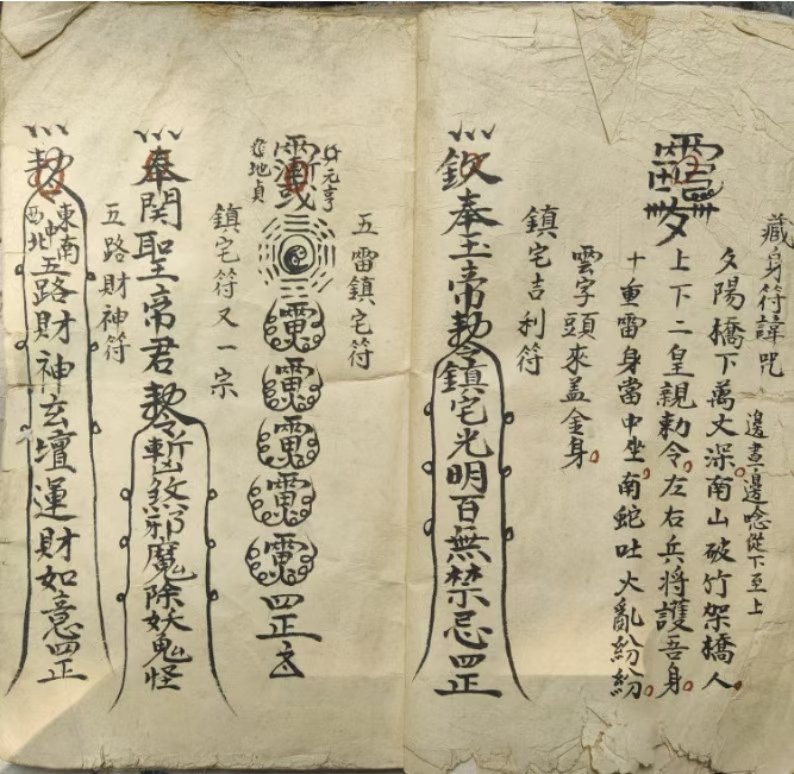 藏身符諱咒
邊畫邊唸從下至上
夕陽橋下萬丈深。南山破竹架橋人。
上下二皇親勅令。左右兵將護吾身。
十重雷身當中坐。南蛇吐火亂紛紛。
雲字頭來盖金身。
鎮宅吉利符
奉玉帝勅令鎮宅光明百無禁忌四正
五雷鎮宅符
元亨
地貞
四正
鎮宅符又一宗
奉関聖帝君勅令斬煞邪魔除妖鬼怪
五路財神符
勅
東南
中
西北
五路財神玄壇運財如意四正